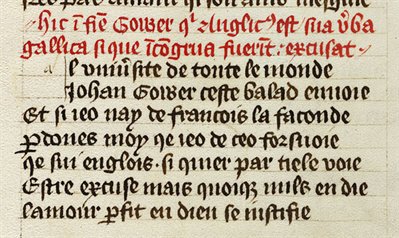 hic in fine Gower qr Anglicus est sua verba
gallica si que incongrua fuerint excusat
Al universite de toute le monde
Johan Gower ceste balade envoie
Et si ieo nay de francois la faconde
pdones moy qe ieo de ceo forsvoie
Ie sui englois si quier par tiele voie
Estre excuse mais quoique nuls en die
lamour pfit en dieu se iustifie